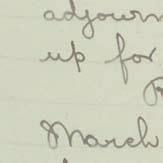 adjourn
up for
March